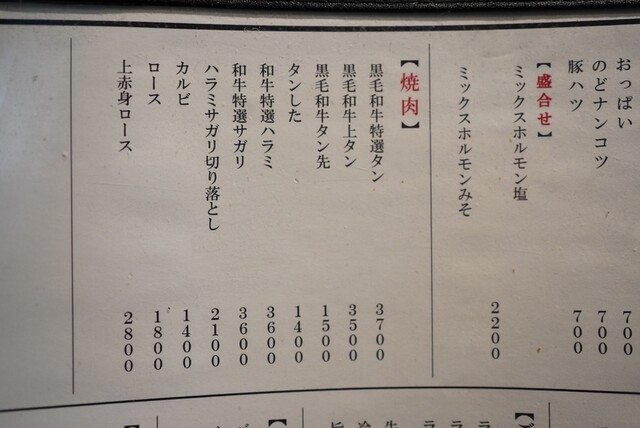 おっぱい 700
のどナンコツ 700
豚ハツ 700
【盛合せ】
ミックスホルモン塩
2200
ミックスホルモンみそ
【焼肉】
黒毛和牛特選タン 3700
黒毛和牛上タン 3500
黒毛和牛タン先 1500
タンした 1400
和牛特選ハラミ 3600
和牛特選サガリ 3600
ハラミサガリ切り落とし 2100
カルビ 1400
ロース 1800
上赤身ロース 2800